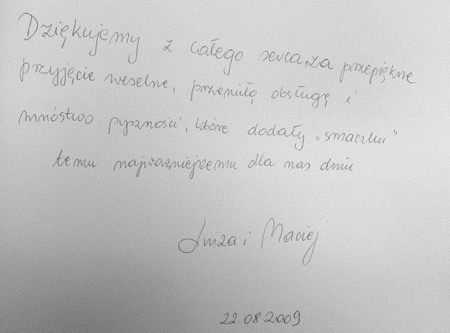 Dziękujemy z całego serca, za przepiękne
przyjęcie weselne, przemiłą obsługę i
mnóstwo pyszności, które dodały „smaczku"
temu najważniejszemu dla nas dniu
Luiza i Maciej
22.08.2009